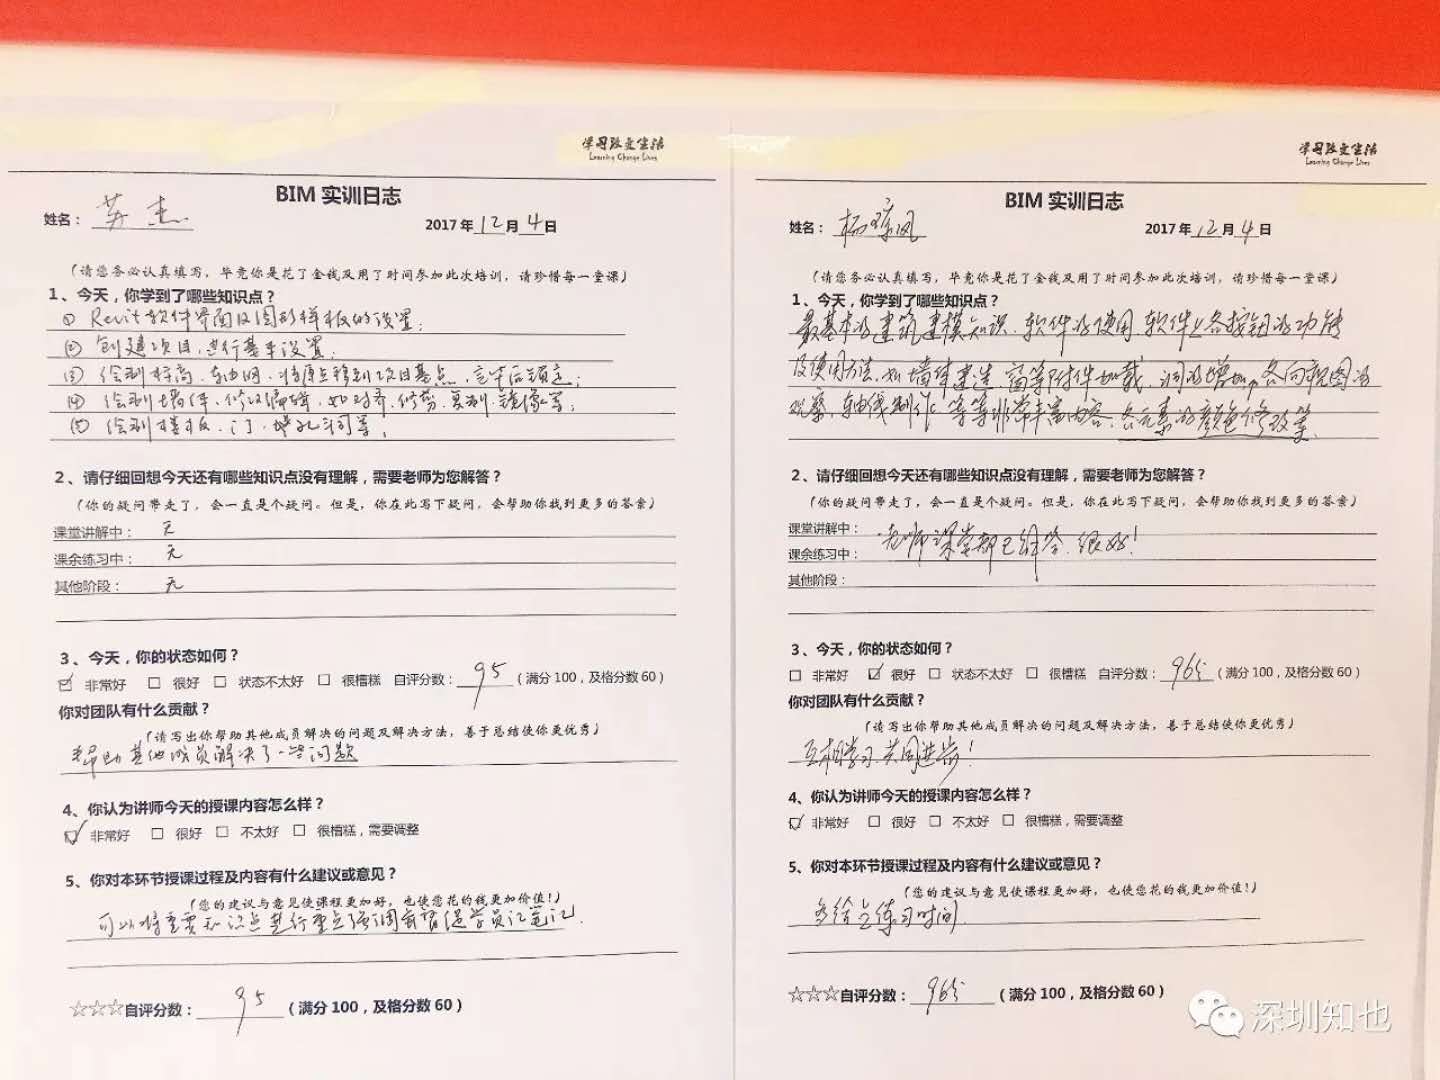 学习改变生活
Learning Change Lives
BIM 实训日志
姓名：苏杰
2017年12月4日
（请您务必认真填写，毕竟你是花了金钱及用了时间参加此次培训，请珍惜每一堂课）
1、今天，你学到了哪些知识点？
① Revit软件界面及图形样板的设置；
② 创建项目，进行基本设置；
③ 绘制标高、轴网、将原点移到项目基点，完毕后锁定；
④ 绘制墙体，修改编辑，如对齐、修剪、复制、镜像等；
⑤ 绘制楼板、门、墙孔洞等！
2、请仔细回想今天还有哪些知识点没有理解，需要老师为您解答？
（你的疑问带走了，会一直是个疑问。但是，你在此写下疑问，会帮助你找到更多的答案）
课堂讲解中：无
课余练习中：无
其他阶段：无
3、今天，你的状态如何？
☑ 非常好 □ 很好 □ 状态不太好 □ 很糟糕 自评分数：95（满分100，及格分数60）
你对团队有什么贡献？
（请写出你帮助其他成员解决的问题及解决方法，善于总结使你更优秀）
帮助其他成员解决了一些问题
4、你认为讲师今天的授课内容怎么样？
☑ 非常好 □ 很好 □ 不太好 □ 很糟糕，需要调整
5、你对本环节授课过程及内容有什么建议或意见？
（您的建议与意见使课程更加好，也使您花的钱更加价值！）
可以将重要知识点进行重点强调督促学员记笔记.
☆☆☆自评分数：95（满分100，及格分数60）
学习改变生活
Learning Change Lives
BIM 实训日志
姓名：杨琼凤
2017年12月4日
（请您务必认真填写，毕竟你是花了金钱及用了时间参加此次培训，请珍惜每一堂课）
1、今天，你学到了哪些知识点？
最基本的建筑建模知识、软件的使用、软件上各按钮的功能
及使用方法，如墙体建造、窗等附件加载、洞的增加，各向视图的
观察、轴线制作、等等非常丰富内容、各元素的颜色修改等
2、请仔细回想今天还有哪些知识点没有理解，需要老师为您解答？
（你的疑问带走了，会一直是个疑问。但是，你在此写下疑问，会帮助你找到更多的答案）
课堂讲解中：
课余练习中：老师课堂都已解答、很好！
其他阶段：
3、今天，你的状态如何？
□ 非常好 ☑ 很好 □ 状态不太好 □ 很糟糕 自评分数：96分（满分100，及格分数60）
你对团队有什么贡献？
（请写出你帮助其他成员解决的问题及解决方法，善于总结使你更优秀）
互相学习、共同进步！
4、你认为讲师今天的授课内容怎么样？
☑ 非常好 □ 很好 □ 不太好 □ 很糟糕，需要调整
5、你对本环节授课过程及内容有什么建议或意见？
（您的建议与意见使课程更加好，也使您花的钱更加价值！）
多给点练习时间
☆☆☆自评分数：96分（满分100，及格分数60）
深圳知也